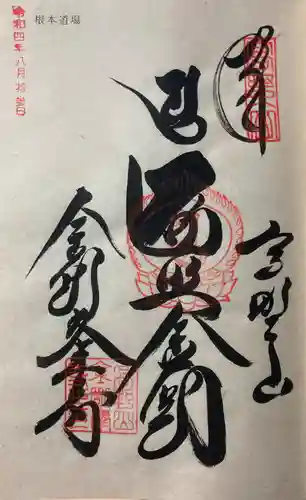 奉拝
高野山
遍照金剛
金剛峯寺
根本道場
令和四年八月拾日